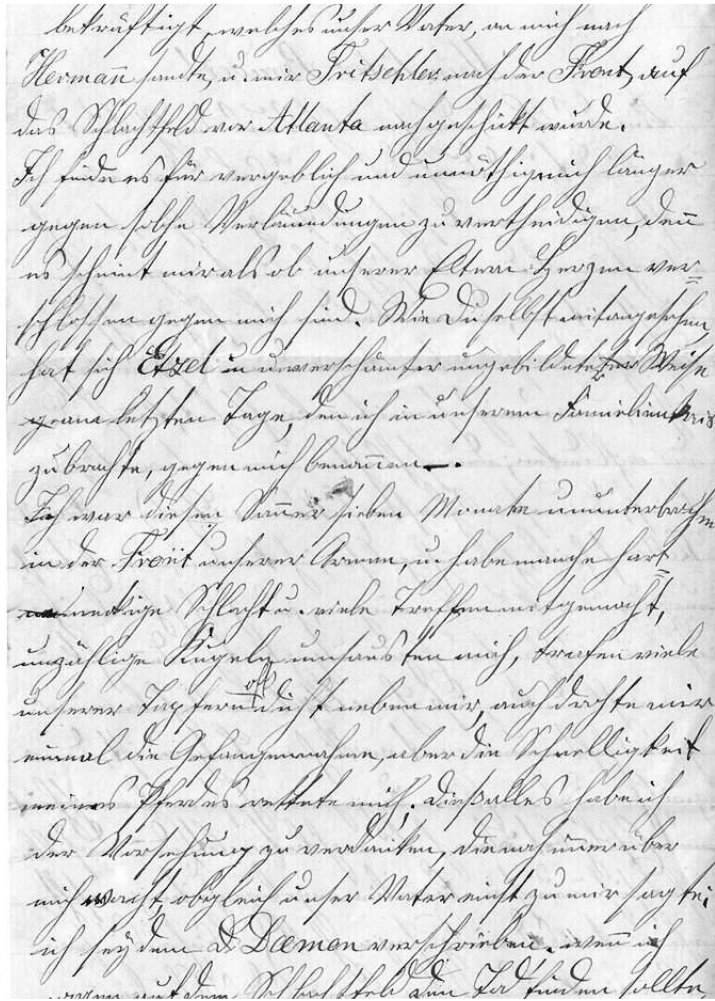 bekräftigt, welches unser Vater, an mich nach
Hermann sandte, u. mir Fritschler nach der Front, auf
das Schlachtfeld vor Atlanta nachgeschickt wurde.
Ich finde es für vergeblich und unnöthig mich länger
gegen solche Verläumdungen zu vertheidigen, denn
es scheint mir als ob unserer Eltern Herzen ver=
schlossen gegen mich sind. Wie Du selbst mitangesehen,
hat sich Etzel in unverschämter ungebildeter Weise
am letzten Tage, den ich in unserem Familienkreis
zubrachte, gegen mich benommen —.
Ich war diesen Sommer sieben Monate ununterbrochen
in der Front unserer Armee, u. habe manche hart=
näckige Schlacht u. viele Treffen mitgemacht,
unzählige Kugeln umsausten mich, trafen viele
unserer Tapfern oft dicht neben mir, auch drohte mir
einmal die Gefangennahme, aber die Schnelligkeit
meines Pferdes rettete mich. Dieß alles habe ich
der Vorsehung zu verdanken, die noch immer über
mich wacht, obgleich unser Vater einst zu mir sagte:
ich sey dem Dæmon verschrieben. wenn ich
auf dem Schlachtfeld den Tod finden sollte